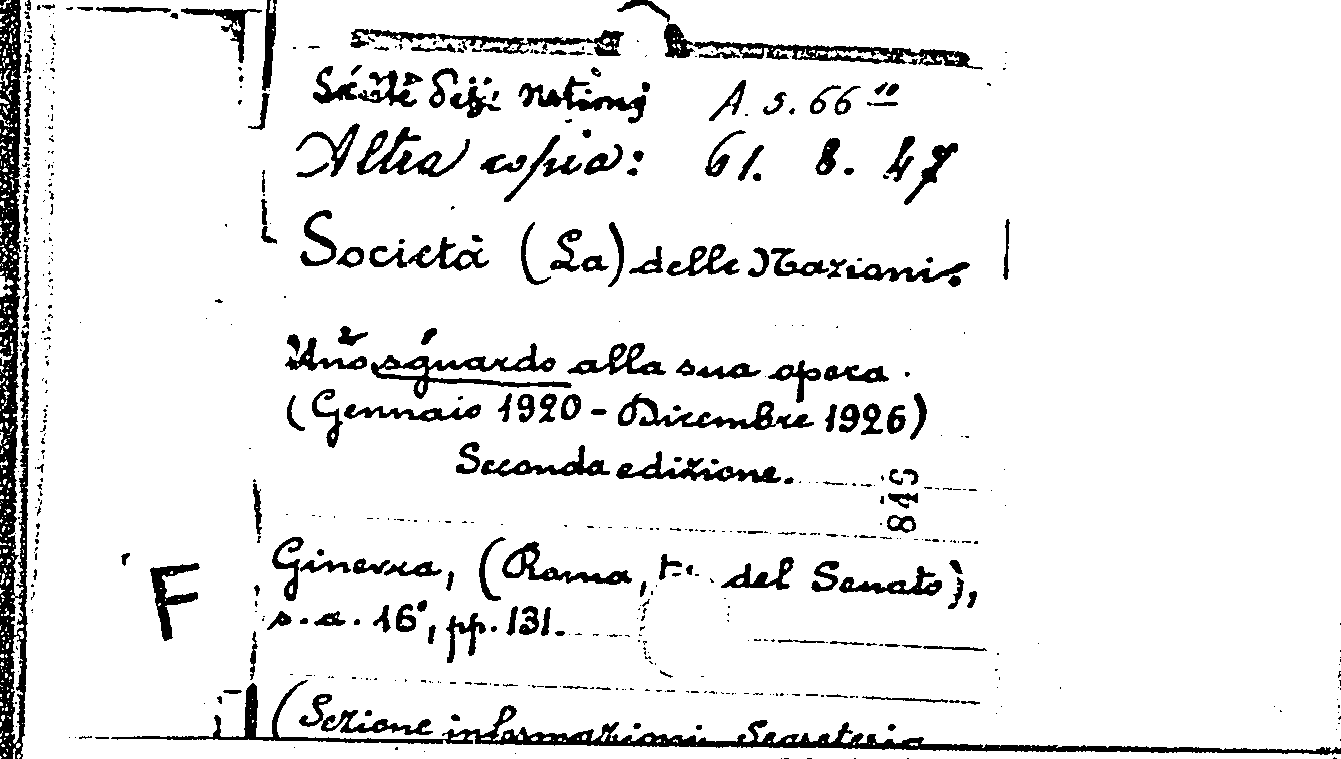 Società delle nazioni A. s. 66 10
Altra copia: 61. 8. 47
Società (La) delle Nazioni.
Uno sguardo alla sua opera.
(Gennaio 1920 - Dicembre 1926)
Seconda edizione.
845
Ginevra, (Roma, del Senato),
F
s. a. 16°, pp. 131.
(Sezione informazioni Segreteria